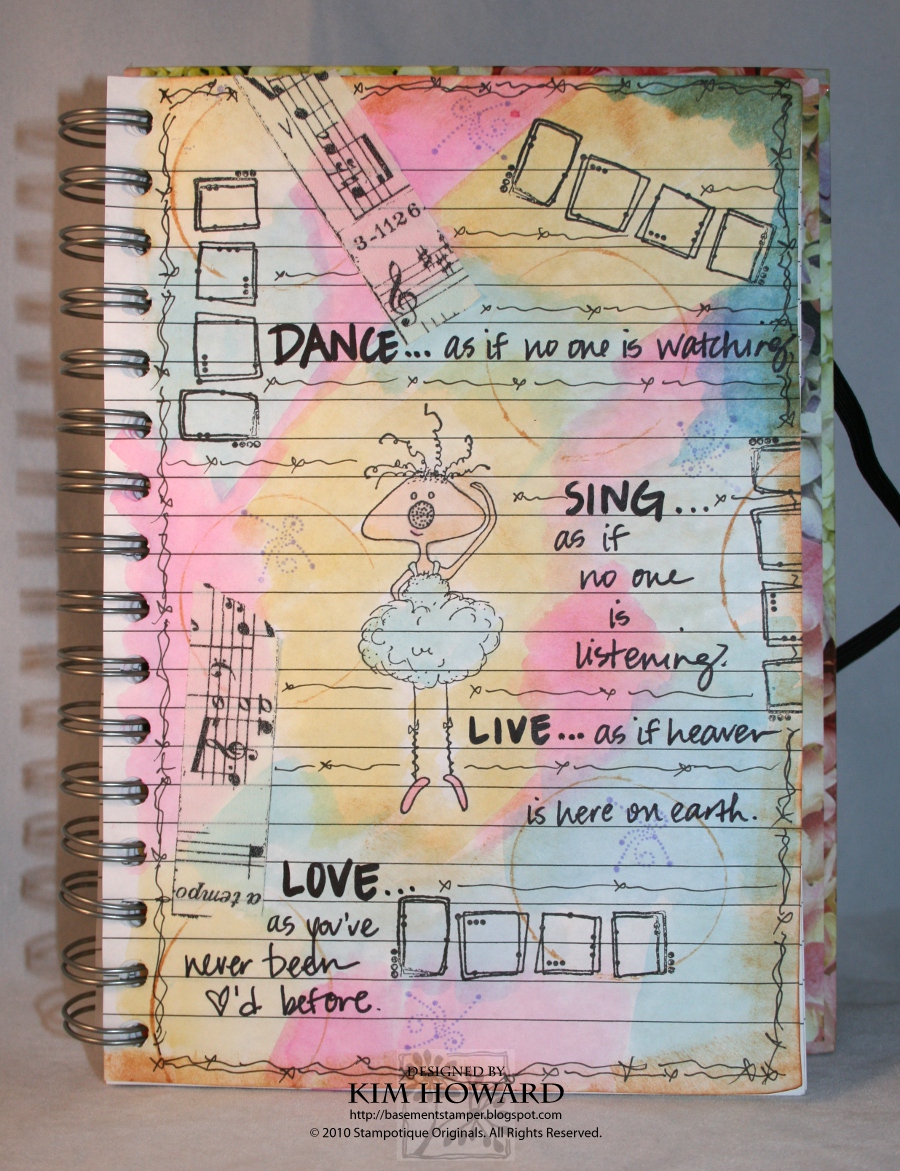 3-1126
DANCE... as if no one is watching
SING...
as if
no one
is
listening?
LIVE... as if heaven
is here on earth.
a tempo
LOVE...
as you've
never been
♡'d before.
DESIGNED BY
KIM HOWARD
http://basementstamper.blogspot.com
© 2010 Stampotique Originals. All Rights Reserved.